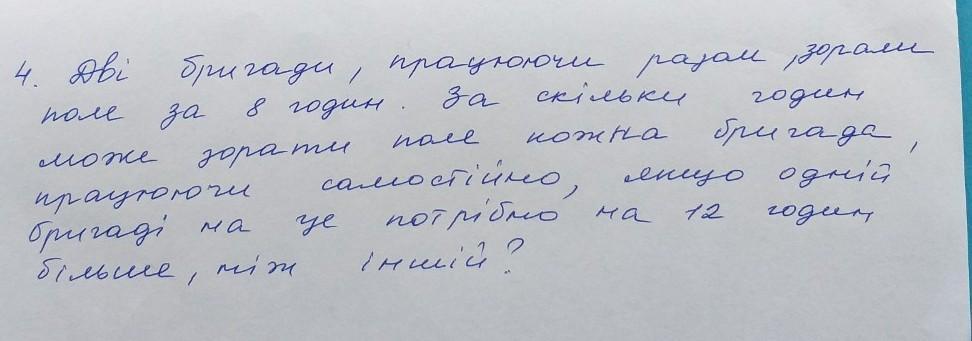 4. Дві бригади, працюючи разом, зорали
поле за 8 годин. За скільки годин
може зорати поле кожна бригада,
працюючи самостійно, якщо одній
бригаді на це потрібно на 12 годин
більше, ніж іншій?